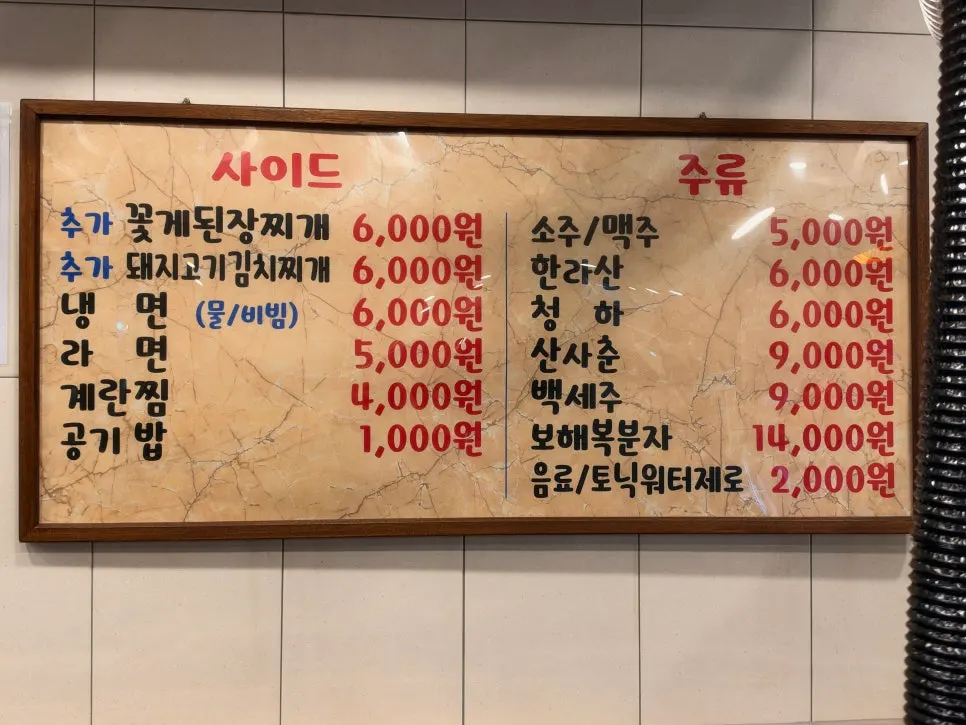 사이드
추가 꽃게된장찌개 6,000원
추가 돼지고기김치찌개 6,000원
냉 면 (물/비빔) 6,000원
라 면 5,000원
계란찜 4,000원
공기 밥 1,000원
주류
소주/맥주 5,000원
한라산 6,000원
청 하 6,000원
산사춘 9,000원
백세주 9,000원
보해복분자 14,000원
음료/토닉워터제로 2,000원